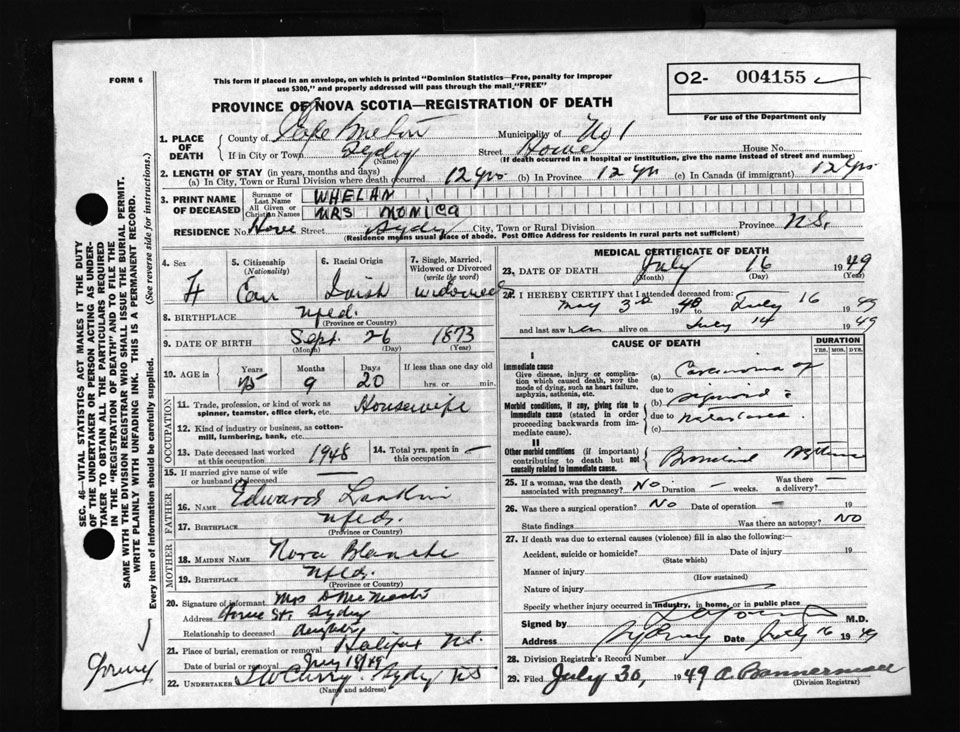 FORM 6
This form if placed in an envelope, on which is printed "Dominion Statistics—Free, penalty for improper
use $300," and properly addressed will pass through the mail, "FREE"
O2- 004155
For use of the Department only
PROVINCE OF NOVA SCOTIA—REGISTRATION OF DEATH
1. PLACE OF DEATH
County of Cape Breton Municipality of No 1
If in City or Town Sydney Street Howe House No.
(Name) (If death occurred in a hospital or institution, give the name instead of street and number)
2. LENGTH OF STAY (in years, months and days)
(a) In City, Town or Rural Division where death occurred 12 yrs (b) In Province 12 yrs (c) In Canada (if immigrant) 12 yrs
3. PRINT NAME OF DECEASED
Surname or Last Name WHELAN
All Given or Christian Names MRS MONICA
RESIDENCE No. Howe Street Sydney City, Town or Rural Division Province N.S.
(Residence means usual place of abode. Post Office Address for residents in rural parts not sufficient)
4. Sex F
5. Citizenship (Nationality) Can
6. Racial Origin Irish
7. Single, Married, Widowed or Divorced (write the word) widowed
8. BIRTHPLACE Nfld.
(Province or Country)
9. DATE OF BIRTH Sept. 26 1873
(Month) (Day) (Year)
10. AGE in Years 75 Months 9 Days 20 If less than one day old hrs. or min.
OCCUPATION
11. Trade, profession, or kind of work as spinner, teamster, office clerk, etc. Housewife
12. Kind of industry or business, as cotton-mill, lumbering, bank, etc.
13. Date deceased last worked at this occupation 1948
14. Total yrs. spent in this occupation —
15. If married give name of wife or husband of deceased
FATHER
16. NAME Edward
17. BIRTHPLACE Nfld.
MOTHER
18. MAIDEN NAME Nora Blanche
19. BIRTHPLACE Nfld.
(Province or Country)
20. Signature of informant Mrs D
Address St. Sydney
Relationship to deceased daughter
21. Place of burial, cremation or removal Halifax N.S.
Date of burial or removal July 18/49
22. UNDERTAKER Sydney NS
(Name and address)
MEDICAL CERTIFICATE OF DEATH
23. DATE OF DEATH July 16 1949
(Month) (Day) (Year)
24. I HEREBY CERTIFY that I attended deceased from:
May 3rd 1948 to July 16 1949
and last saw her alive on July 14 1949
CAUSE OF DEATH
DURATION
YRS. MOS. DYS.
I
Immediate cause
Give disease, injury or complication which caused death, NOT the mode of dying, such as heart failure, asphyxia, asthenia, etc.
(a) Carcinoma of
due to
Morbid conditions, if any, giving rise to immediate cause (stated in order proceeding backwards from immediate cause).
(b) sigmoid c̄
due to
(c) metastases
II
Other morbid conditions (if important) contributing to death but not causally related to immediate cause.
Bronchial Asthma
25. If a woman, was the death associated with pregnancy? No Duration — weeks. Was there a delivery? —
26. Was there a surgical operation? No Date of operation — 19
State findings Was there an autopsy? NO
27. If death was due to external causes (violence) fill in also the following:
Accident, suicide or homicide? Date of injury 19
(State which)
Manner of injury
(How sustained)
Nature of injury
Specify whether injury occurred in industry, in home, or in public place
Signed by M.D.
Address Sydney Date July 16 1949
28. Division Registrar's Record Number
29. Filed July 30, 1949 A. Bannerman
(Division Registrar)
SEC. 46—VITAL STATISTICS ACT MAKES IT THE DUTY
OF THE UNDERTAKER OR PERSON ACTING AS UNDER-
TAKER TO OBTAIN ALL THE PARTICULARS REQUIRED
IN THE "REGISTRATION OF DEATH" AND TO FILE THE
SAME WITH THE DIVISION REGISTRAR WHO SHALL ISSUE THE BURIAL PERMIT.
WRITE PLAINLY WITH UNFADING INK. THIS IS A PERMANENT RECORD.
Every item of information should be carefully supplied. (See reverse side for instructions.)